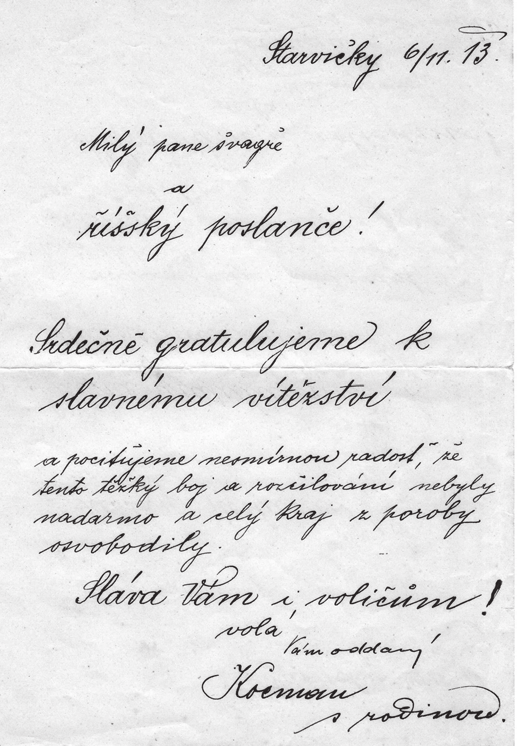 Starvičky 6/11. 13.
Milý pane švagře
a
říšský poslanče!
Srdečně gratulujeme k
slavnému vítězství
a pocitujeme nesmírnou radost, že
tento těžký boj a rozčilování nebyly
nadarmo a celý kraj z poroby
osvobodily.
Sláva Vám i voličům!
volá
Vám oddaný
Kocman
s rodinou.